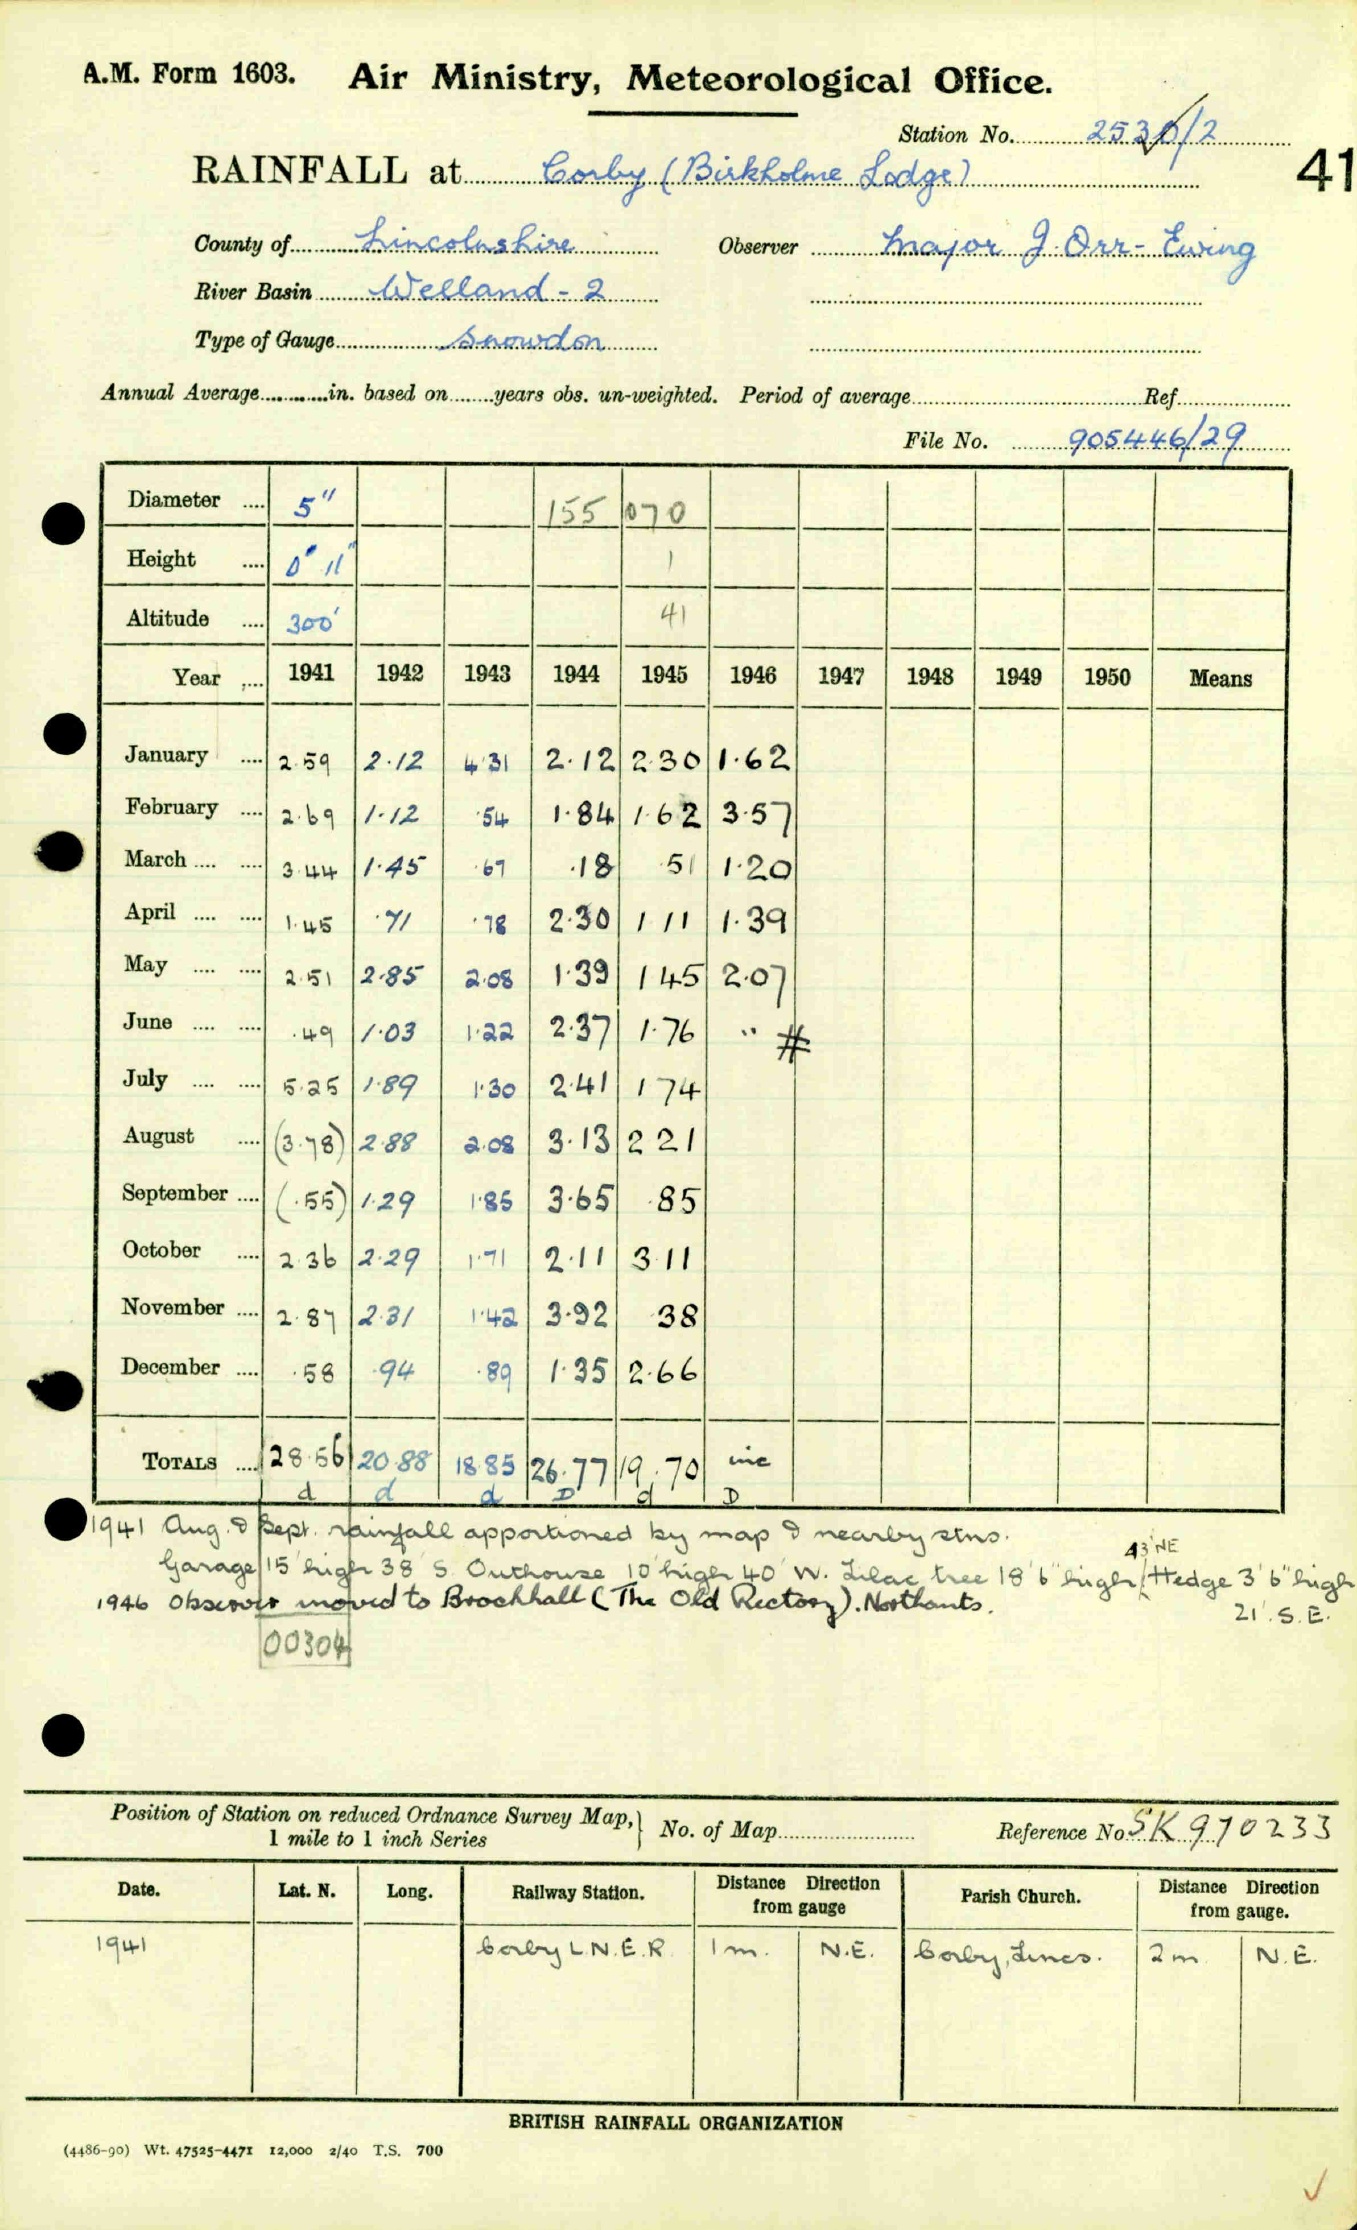 A.M. Form 1603. Air Ministry, Meteorological Office.
Station No. 2530/2
41
RAINFALL at Corby (Birkholme Lodge)
County of Lincolnshire Observer Major J. Orr-Ewing
River Basin Welland - 2
Type of Gauge Snowdon
Annual Average in. based on years obs. un-weighted. Period of average Ref.
File No. 905446/29
Diameter .... 5" 155 070
Height .... 0' 11" 1
Altitude .... 300' 41
Year .... 1941 1942 1943 1944 1945 1946 1947 1948 1949 1950 Means
January .... 2.59 2.12 4.31 2.12 2.30 1.62
February .... 2.69 1.12 .54 1.84 1.62 3.57
March .... .... 3.44 1.45 .67 .18 .51 1.20
April .... .... 1.45 .71 .78 2.30 1 11 1.39
May .... .... 2.51 2.85 2.08 1.39 1 45 2.07
June .... .... .49 1.03 1.22 2.37 1.76 " #
July .... .... 5.25 1.89 1.30 2.41 1 74
August .... (3.78) 2.88 2.08 3.13 2 21
September .... (.55) 1.29 1.85 3.65 .85
October .... 2.36 2.29 1.71 2.11 3 11
November .... 2.87 2.31 1.42 3.92 .38
December .... .58 .94 .89 1.35 2.66
TOTALS .... 28.56 20.88 18.85 26.77 19.70 inc
d d d D d D
1941 Aug. & Sept. rainfall apportioned by map & nearby stns.
Garage 15' high 38' S. Outhouse 10' high 40' W. Lilac tree 18' 6" high 43' NE Hedge 3' 6" high
21' S.E.
1946 Observer moved to Brockhall (The Old Rectory). Northants.
00304
Position of Station on reduced Ordnance Survey Map, 1 mile to 1 inch Series } No. of Map Reference No. SK 970233
Date. Lat. N. Long. Railway Station. Distance Direction from gauge Parish Church. Distance Direction from gauge.
1941 Corby L.N.E.R. 1 m. N.E. Corby, Lincs. 2 m N.E.
BRITISH RAINFALL ORGANIZATION
(4486-90) Wt. 47525-4471 12,000 2/40 T.S. 700